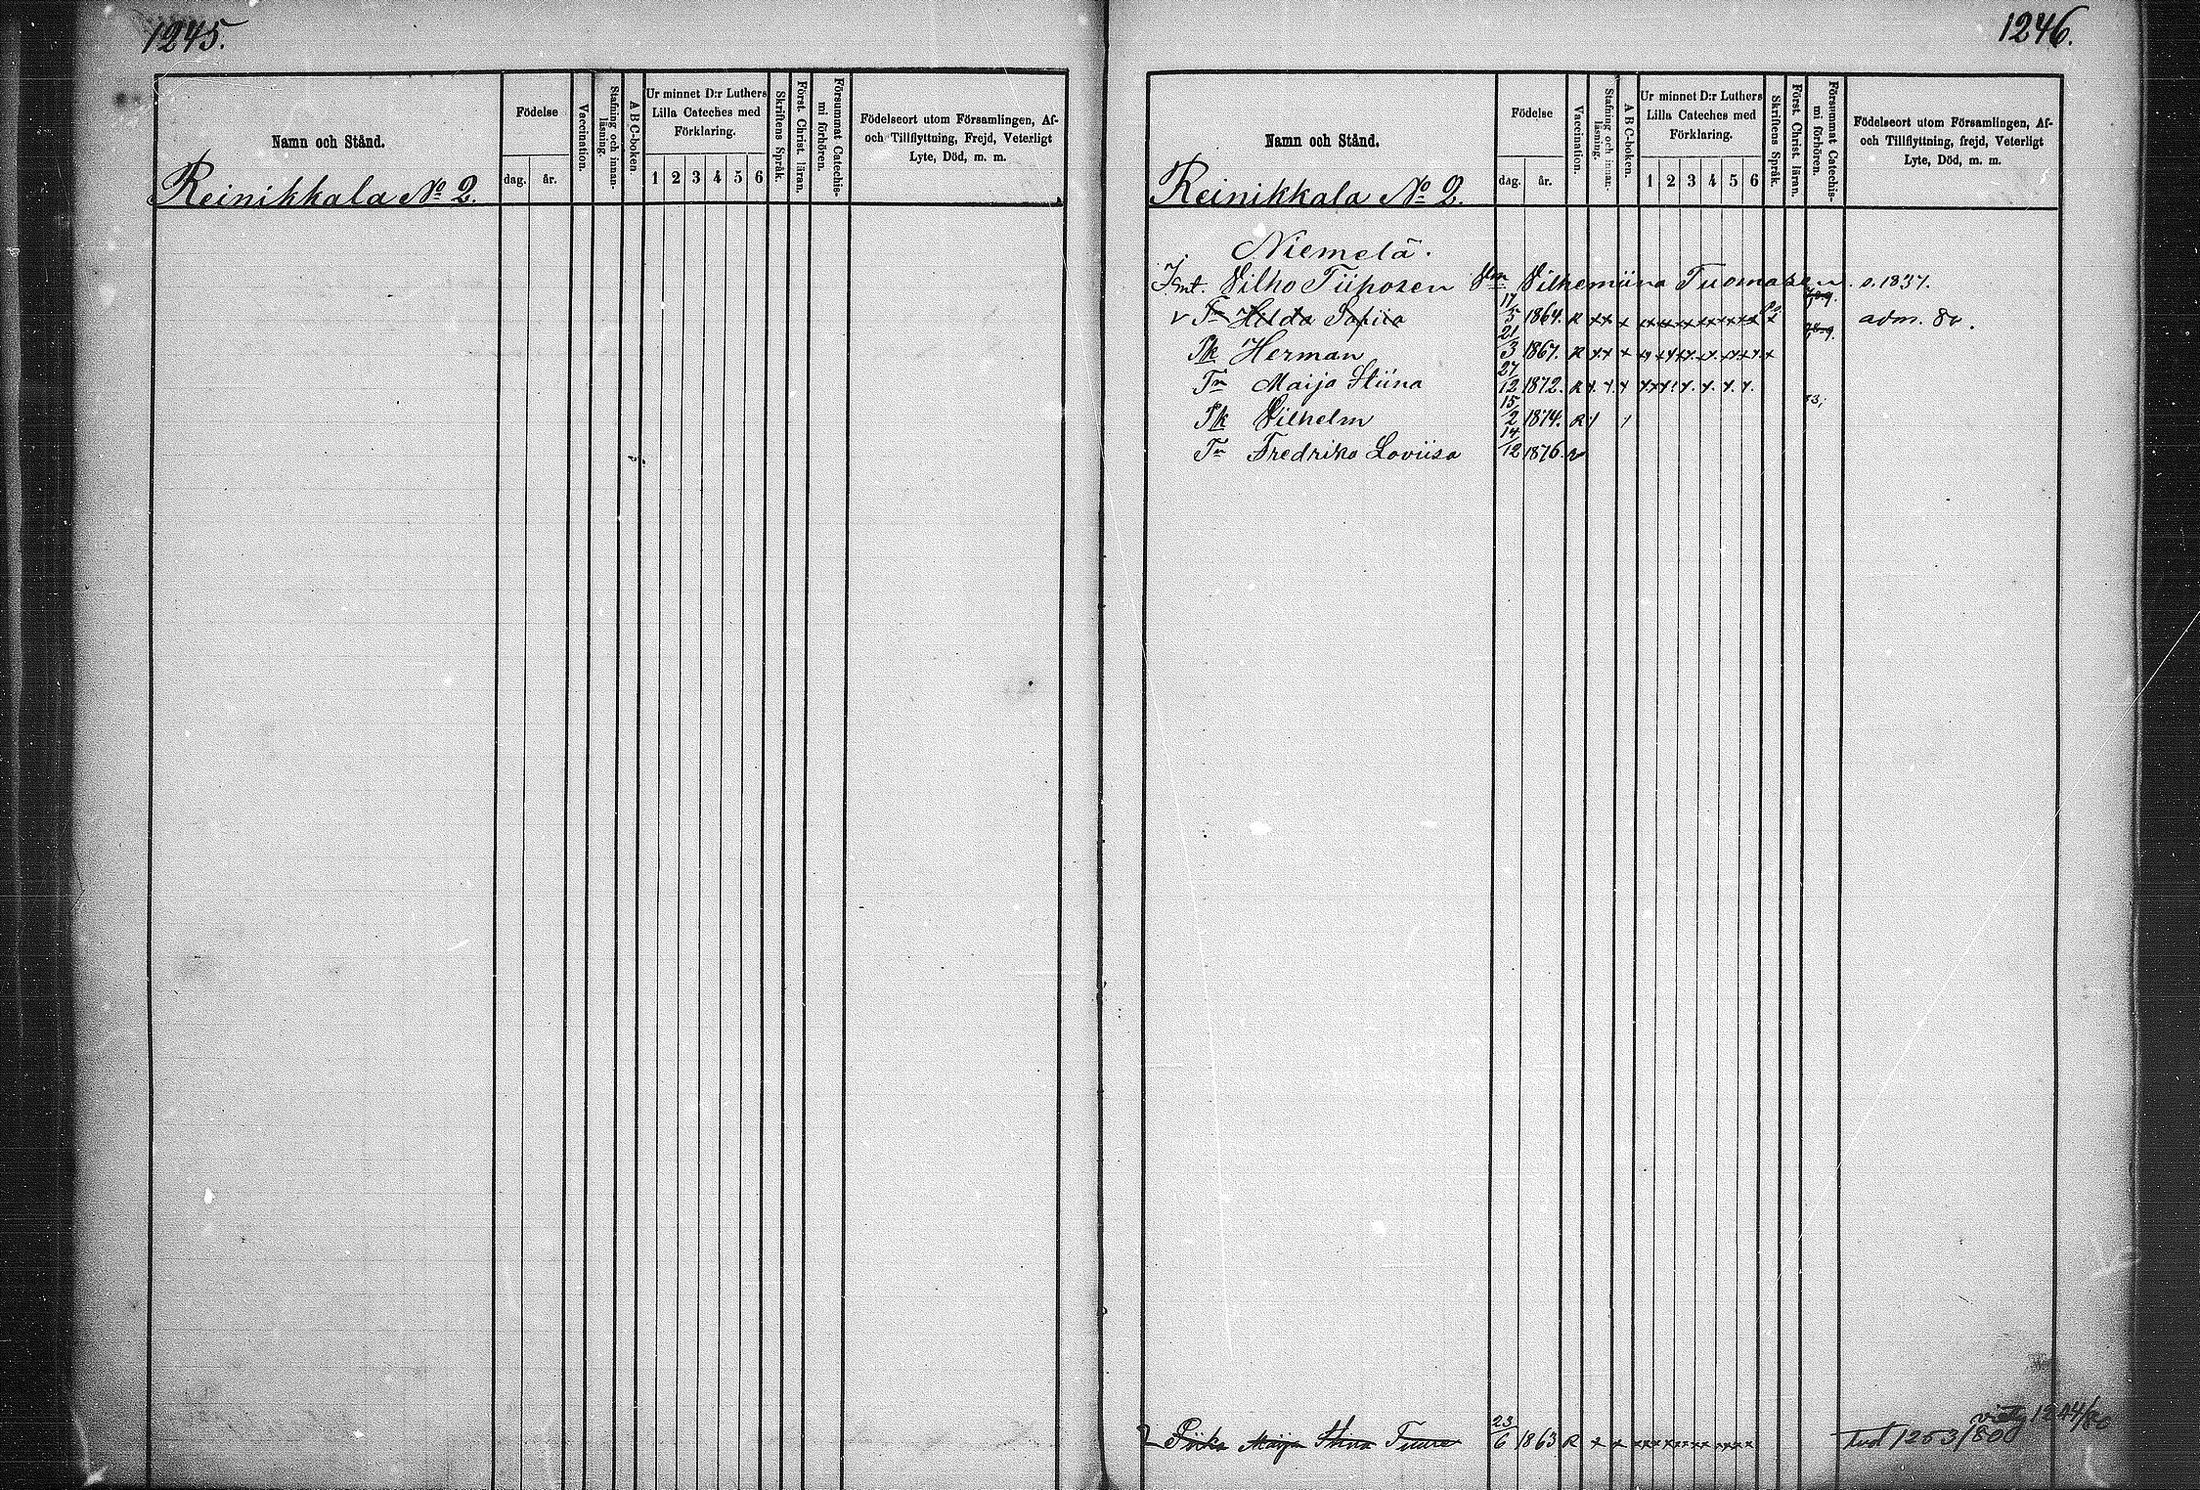 1245.
Namn och Stånd.
Födelse
dag. år.
Vaccination.
Stafning och innan-
läsning.
A B C-boken
Ur minnet D:r Luthers
Lilla Cateches med
Förklaring.
1 2 3 4 5 6
Skriftens Språk.
Först. Christ. läran.
Försummat Catechis-
mi förhören.
Födelseort utom Församlingen, Af-
och Tillflyttning, Frejd, Veterligt
Lyte, Död, m. m.
Reinikkala No 2.
1246.
Namn och Stånd.
Födelse
dag. år.
Vaccination.
Stafning och innan-
läsning.
A B C-boken.
Ur minnet D:r Luthers
Lilla Cateches med
Förklaring.
1 2 3 4 5 6
Skriftens Språk.
Först. Christ. läran.
Försummat Catechis-
mi förhören.
Födelseort utom Församlingen, Af-
och Tillflyttning, frejd, Veterligt
Lyte, Död, m. m.
Reinikkala No 2.
Niemelä.
Vilho Tiihosen Vilhemiina Tuomaben s. 1837.
Tr Hilda Sofiia 17/5 1864. R adm. 80.
Pk Herman 21/3 1867. R
Tr Maija Stiina 27/12 1872. R
Pk Vilhelm 15/2 1874. R
Tr Fredrika Loviisa 14/12 1876. R
1244/80
Piika Maija Stina Tuure 23/6 1863 R 1253/800